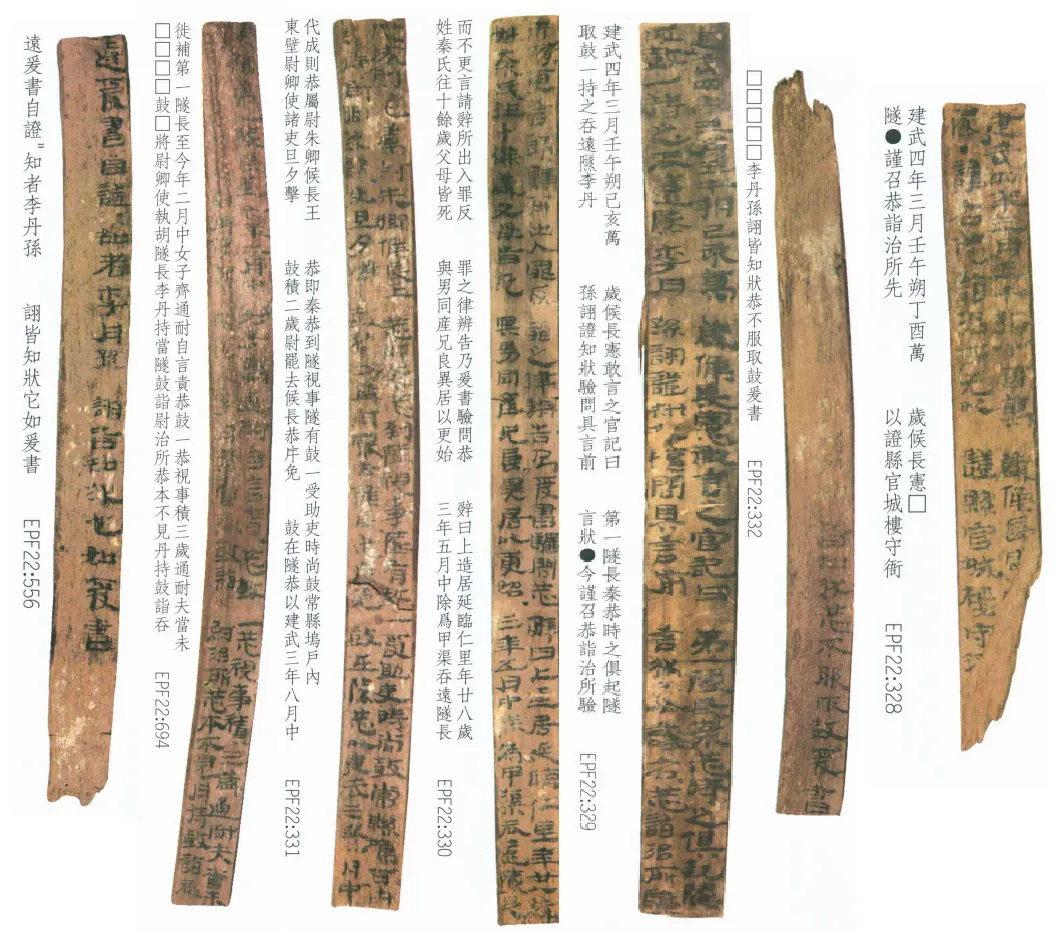 建武四年三月壬午朔丁酉萬 歲候長憲□
隧●謹召恭詣治所先 以證縣官城樓守衙
EPF22:328
□□□□□李丹孫詡皆知狀恭不服取鼓爰書
EPF22:332
建武四年三月壬午朔己亥萬 歲候長憲敢言之官記曰 第一隧長秦恭時之俱起隧
取鼓一持之吞遠隧李丹 孫詡證知狀驗問具言前 言狀●今謹召恭詣治所驗
EPF22:329
而不更言請辤所出入罪反 罪之律辨告乃爰書驗問恭 辤曰上造居延臨仁里年廿八歲
姓秦氏往十餘歲父母皆死 與男同産兄良異居以更始 三年五月中除爲甲渠吞遠隧長
EPF22:330
代成則恭屬尉朱卿候長王 恭即秦恭到隧視事隧有鼓一受助吏時尚鼓常縣塢戶內
東壁尉卿使諸吏旦夕擊 鼓積二歲尉罷去候長恭庠免 鼓在隧恭以建武三年八月中
EPF22:331
徙補第一隧長至今年二月中女子齊通耐自言責恭鼓一恭視事積三歲通耐夫當未
□□□□鼓□將尉卿使執胡隧長李丹持當隧鼓詣尉治所恭本不見丹持鼓詣吞
EPF22:694
遠爰書自證〓知者李丹孫 詡皆知狀它如爰書
EPF22:556